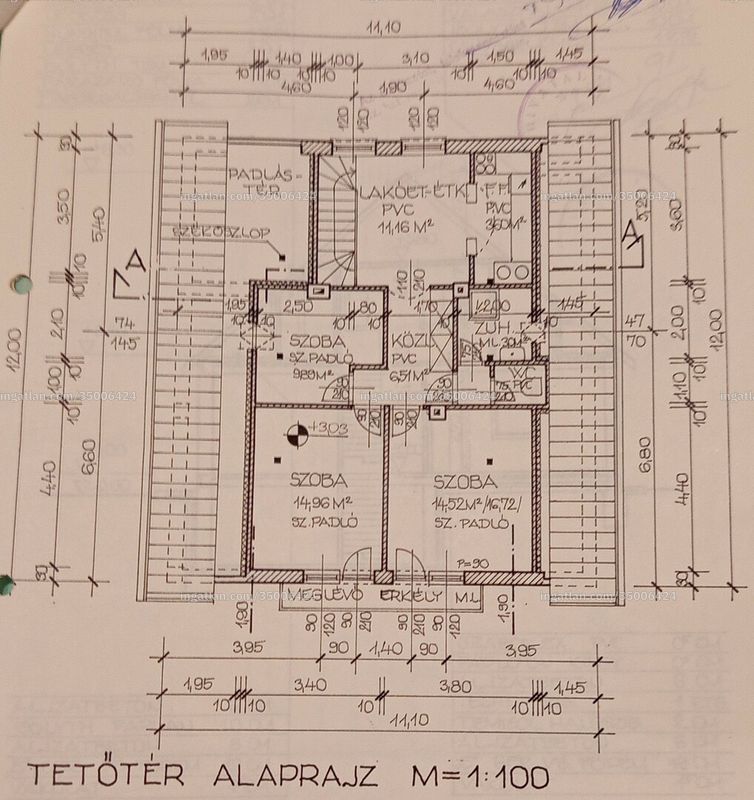 11,10
1,95 1,40 1,00 3,10 1,50 1,45
10 10 10 10 10 10
4,60 1,90 4,60
120 120
PADLÁS-
TÉR
LAKÓELŐT-ÉTK.
PVC
11,16 M²
F.F.
PVC
3,60 M²
SZÉKOSZLOP
A
A
12,00
30
3,50
5,40
10 10
2,10
1,00
10
4,40
6,60
30
74
145
2,50
80
170
145
10 10
110
210
SZOBA
SZ.PADLÓ
KÖZL.
PVC
6,51 M²
ZUH.
WC
PVC
47
70
5,20
3,60
10
2,00
1,10
10
12,00
6,80
4,40
30
90
210
+3,03
SZOBA
14,96 M²
SZ. PADLÓ
SZOBA
14,52 M² /16,72/
SZ. PADLÓ
P=90
MEGLÉVŐ ERKÉLY M.L.
1,90
90 120 90 210 90 210 90 120
1,90
3,95 90 1,40 90 3,95
1,95 3,40 3,80 1,45
10 10 10 10 10
11,10
TETŐTÉR ALAPRAJZ M=1:100
ingatlan.com/35006424